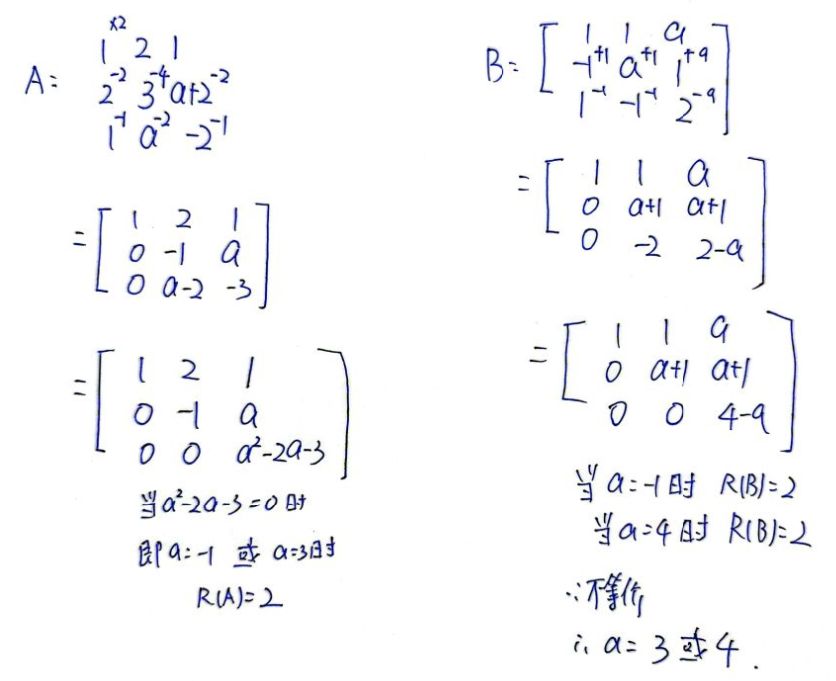 ×2
A: 1 2 1
2⁻² 3⁻⁴ a+2⁻²
1⁻¹ a⁻² -2⁻¹
= [ 1 2 1
0 -1 a
0 a-2 -3 ]
= [ 1 2 1
0 -1 a
0 0 a²-2a-3 ]
当a²-2a-3=0时
即a=-1 或 a=3时
R(A)=2
B= [ 1 1 a
-1⁺¹ a⁺¹ 1⁺ᵃ
1⁻¹ -1⁻¹ 2⁻ᵃ ]
= [ 1 1 a
0 a+1 a+1
0 -2 2-a ]
= [ 1 1 a
0 a+1 a+1
0 0 4-a ]
当a=-1时 R(B)=2
当a=4时 R(B)=2
∵不等价
∴ a= 3或4.